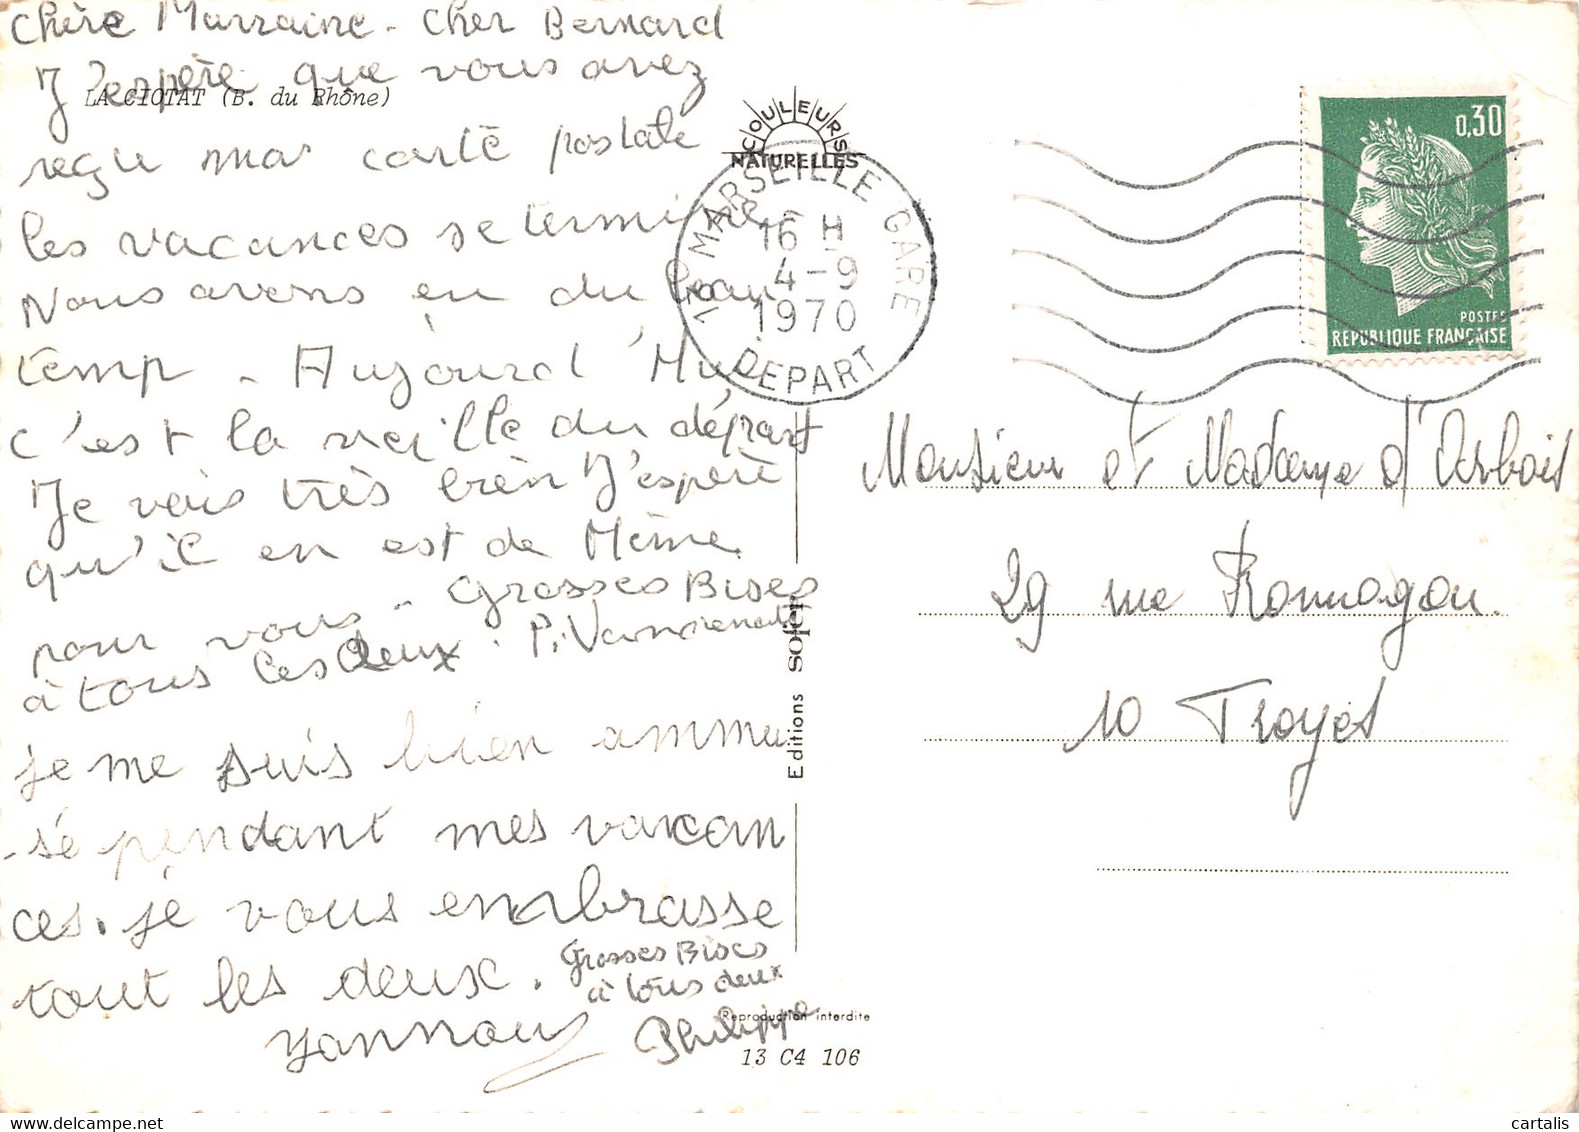 Chère Marraine - Cher Bernard
J'espère que vous avez
LA CIOTAT (B. du Rhône)
reçu ma carte postale
les vacances se termine
Nous avons eu du beau
temp - Aujourd'Hui
c'est la veille du départ
Je vais très bien J'espère
qu'il en est de Même
pour vous - Grosses Bises
à tous les deux. P.
je me suis bien ammu
-sé pendant mes vacan
ces. je vous embrasse
tout les deux.
Grosses Bises
à tous deux
Yannou Philippe
COULEURS
NATURELLES
13 MARSEILLE GARE
16 H
4-9
1970
DEPART
0,30
POSTES
REPUBLIQUE FRANÇAISE
Monsieur et Madame d'Arbois
29 rue Romagon.
10 Troyes
Editions sofer
Reproduction interdite
13 C4 106
cartalis